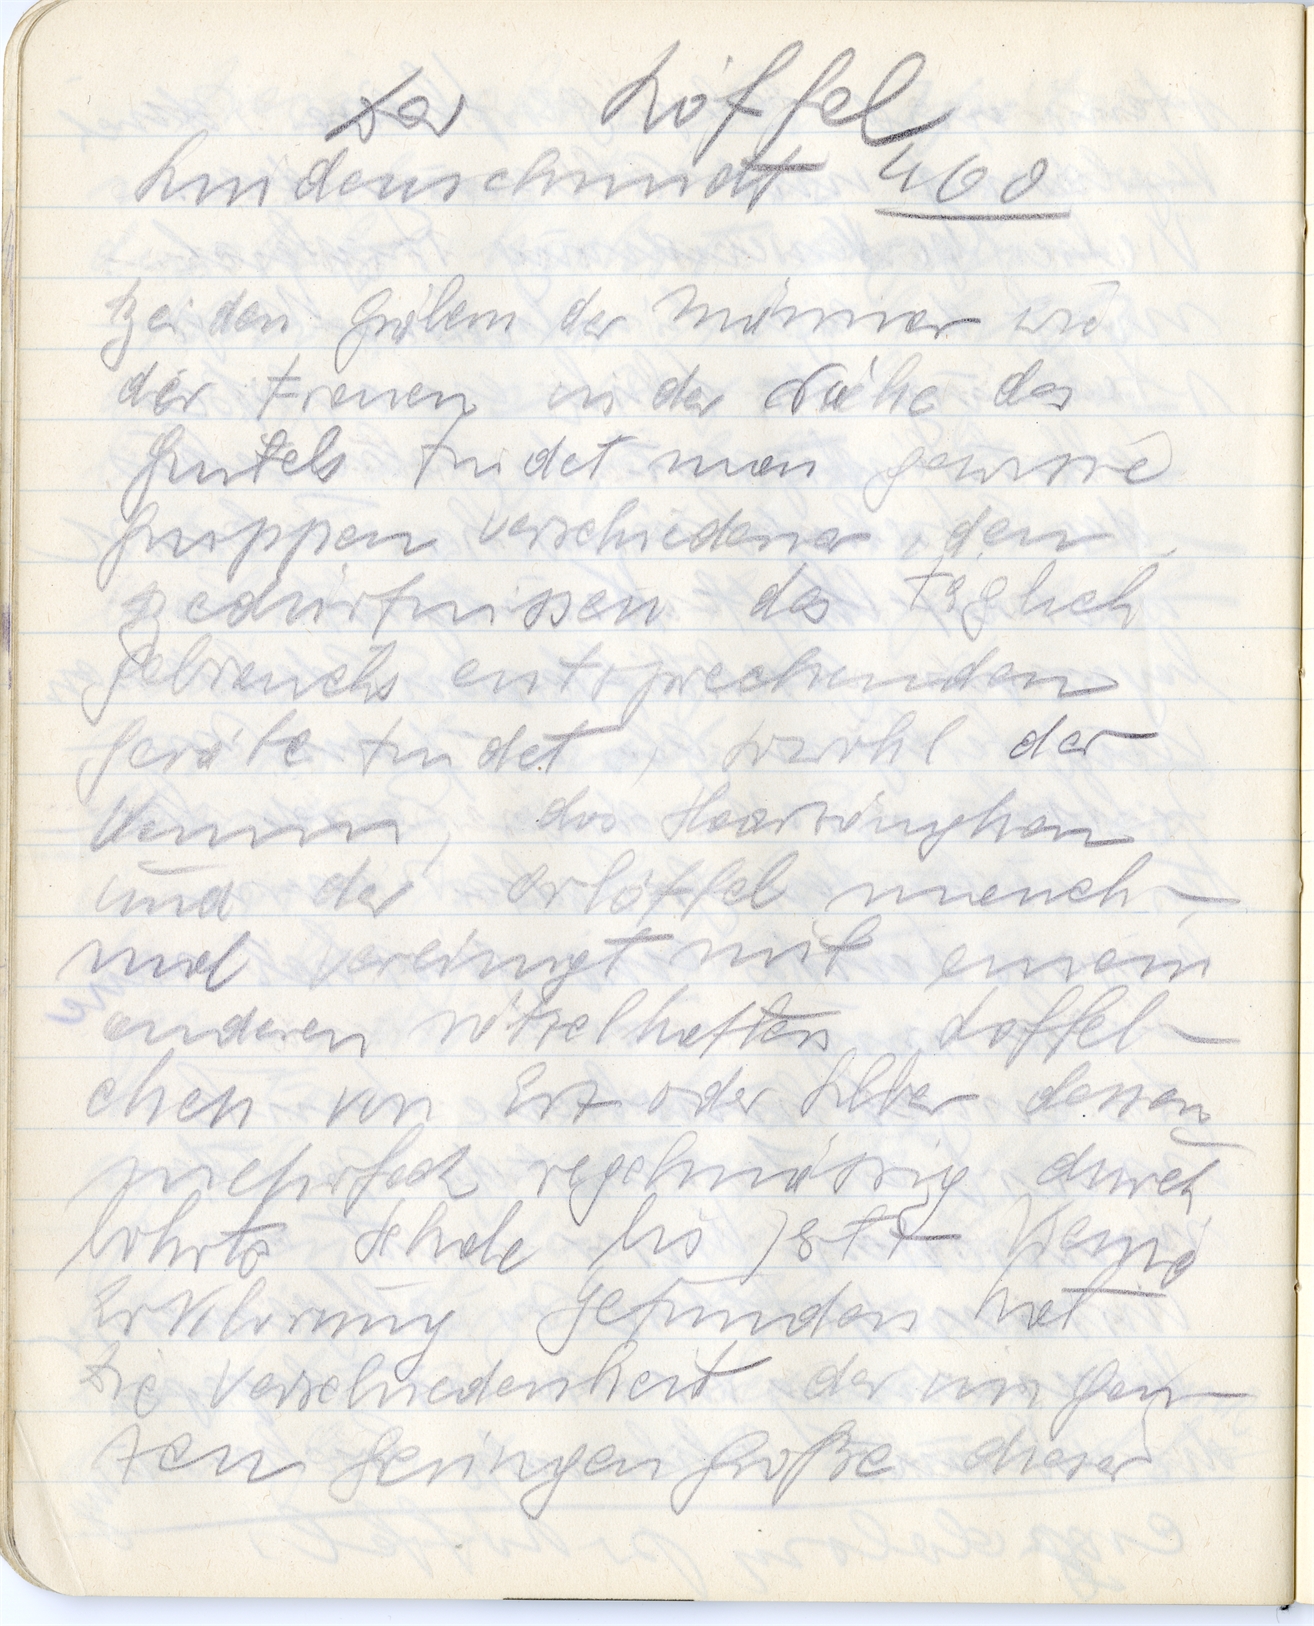 Der Löffel
Lindenschmidt 460
Bei den Gräbern der Männer wie
der Frauen in der Nähe des
Gürtels findet man gewisse
Gruppen verschiedener, den
Bedürfnissen des täglich
Gebrauchs entsprechenden
Geräte findet, sowohl der
Kamm, das Haarzängchen
und der Ohrlöffel manch-
mal vereinigt mit einem
anderen rätselhaften Löffel-
chen von Erz oder Silber dessen
vielfach regelmässig durch
bohrte Schale bis jetzt keine
Erklärung gefunden hat
Die Verschiedenheit der im gan-
zen geringen Größe dieser